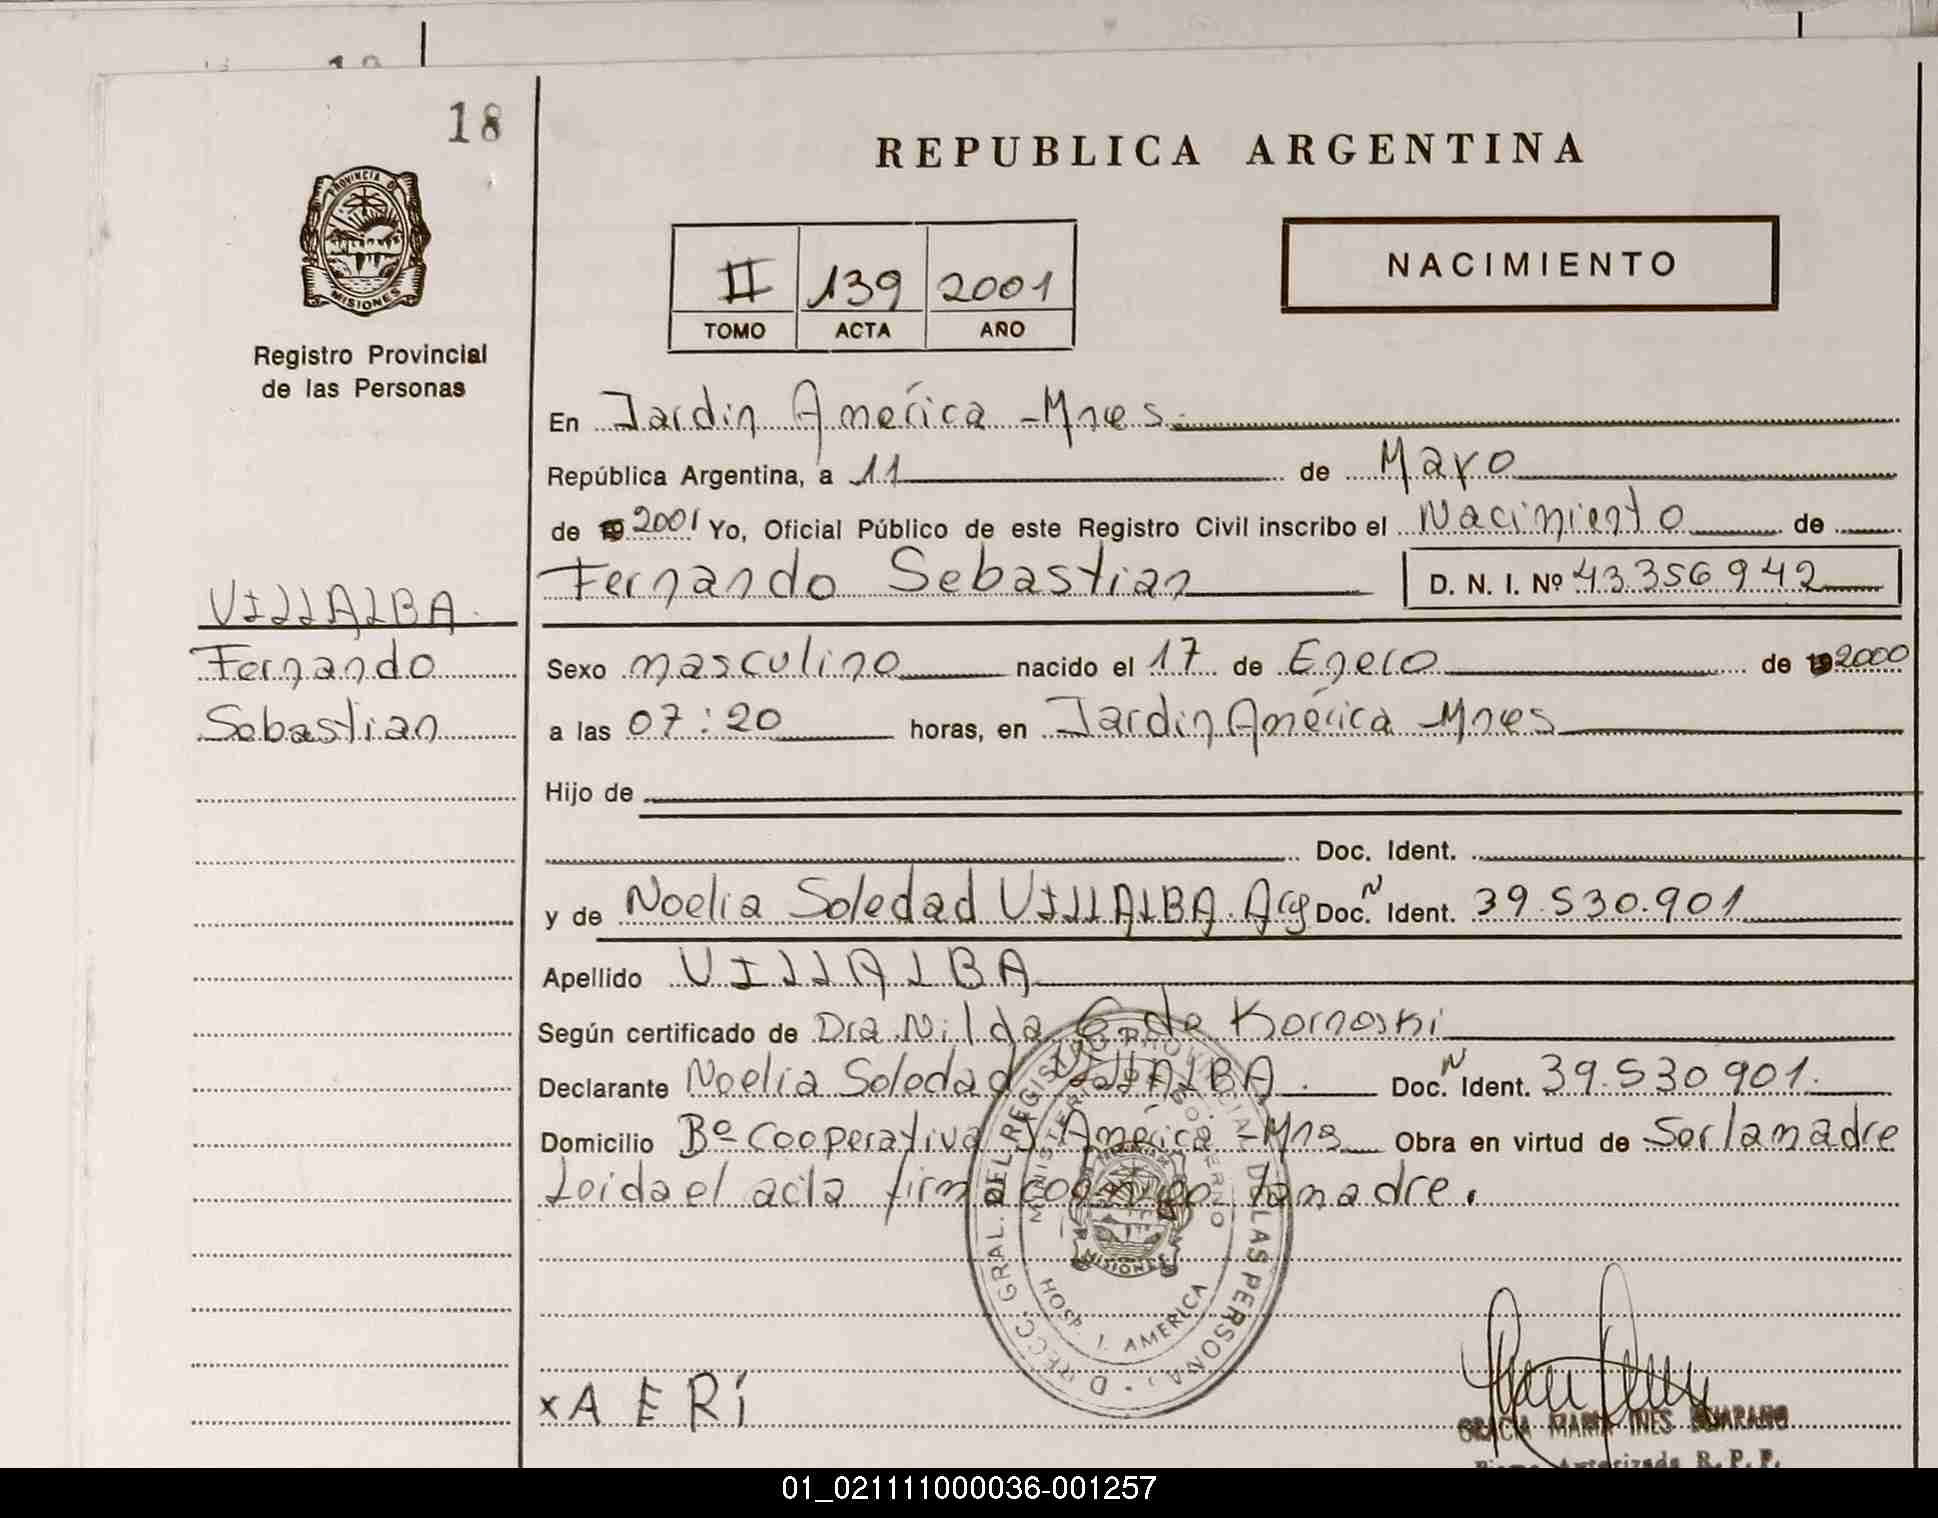 18
PROVINCIA DE
MISIONES
Registro Provincial
de las Personas
REPUBLICA ARGENTINA
II 139 2001
TOMO ACTA AÑO
NACIMIENTO
En Jardin América - Mnes.
República Argentina, a 11 de Mayo
de 19 2001 Yo, Oficial Público de este Registro Civil inscribo el Nacimiento de
Fernando Sebastian D. N. I. Nº 43.356942
VILLALBA.
Fernando
Sebastian
Sexo masculino nacido el 17 de Enero de 19 2000
a las 07:20 horas, en Jardin América - Mnes
Hijo de
Doc. Ident.
y de Noelia Soledad VILLALBA. Arg Doc. N Ident. 39.530.901
Apellido VILLALBA
Según certificado de Dra. Nilda C de Kornoski
Declarante Noelia Soledad VILLALBA. Doc. N Ident. 39.530901.
Domicilio Bº Cooperativa J. América - Mns Obra en virtud de Ser la madre
Leida el acta firma conmigo la madre.
DIRECC. GRAL. DEL REGISTRO PROVINCIAL DE LAS PERSONAS
MINISTERIO DE GOBIERNO
MISIONES
HOSP. J. AMERICA
x A E Rí
GRACIA MARIA INES
Firma Autorizada R. P. P.
01_021111000036-001257